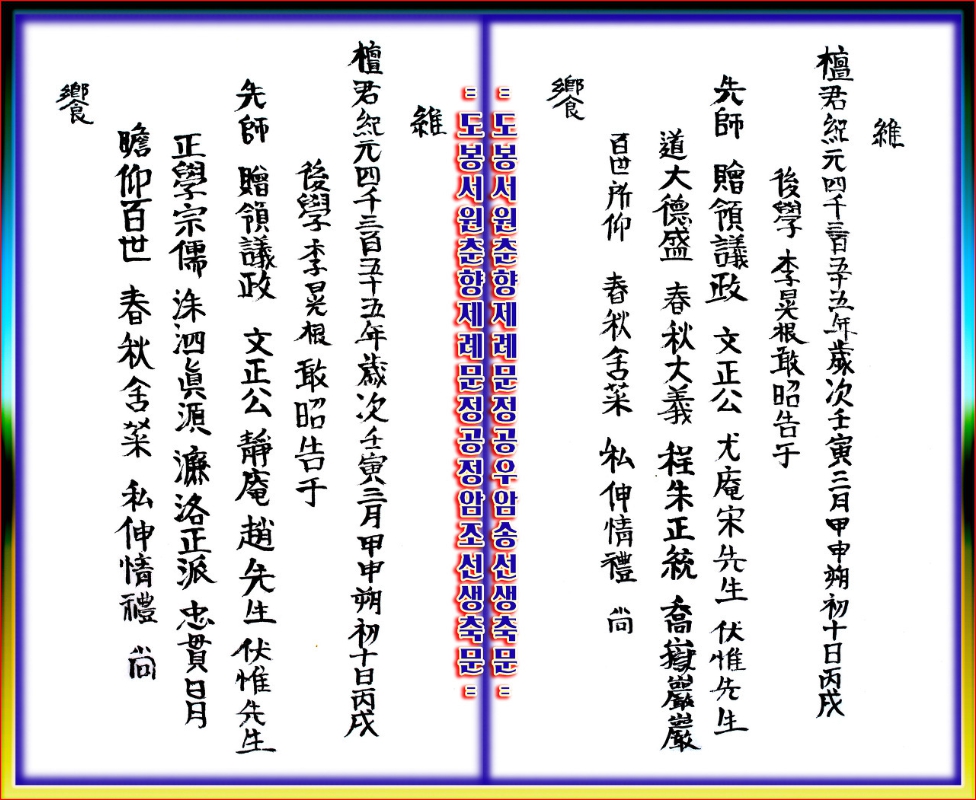 維
檀君紀元四千三百五十五年歲次壬寅三月甲申朔初十日丙戌
後學 李晃根 敢昭告于
先師 贈領議政 文正公 尤庵宋先生 伏惟先生
道大德盛 春秋大義 程朱正統 喬嶽巖巖
百世所仰 春秋舍菜 私伸情禮 尙
饗
= 도봉서원춘향제례문정공우암송선생축문 =
= 도봉서원춘향제례문정공정암조선생축문 =
維
檀君紀元四千三百五十五年歲次壬寅三月甲申朔初十日丙戌
後學 李晃根 敢昭告于
先師 贈領議政 文正公 靜庵趙先生 伏惟先生
正學宗儒 洙泗眞源 濂洛正派 忠貫日月
瞻仰百世 春秋舍菜 私伸情禮 尙
饗